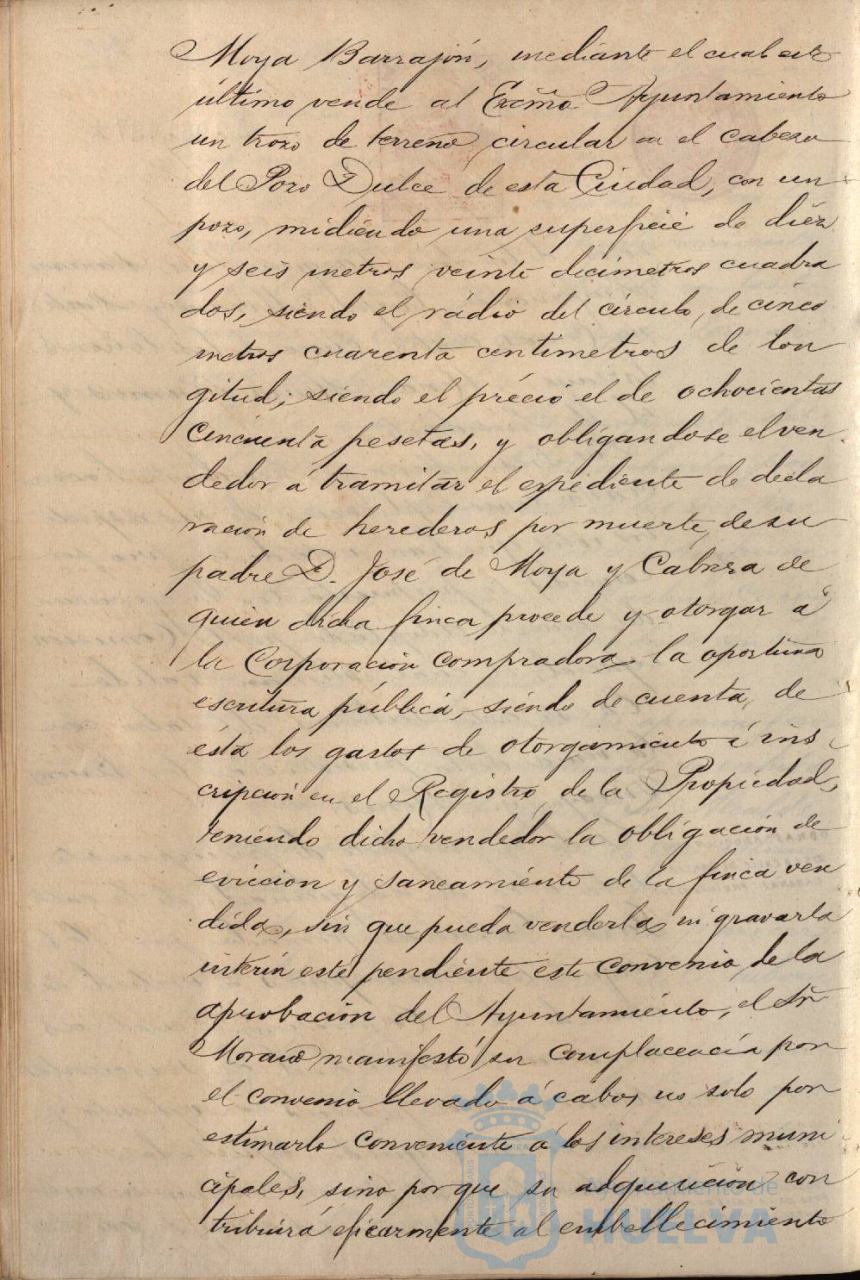 Moya Barrajón, mediante el cual este
último vende al Excmo. Ayuntamiento
un trozo de terreno circular en el cabezo
del Pozo Dulce de esta Ciudad, con un
pozo, midiendo una superficie de diéz
y seis metros veinte decímetros cuadra
dos, siendo el rádio del círculo, de cinco
metros cuarenta centímetros de lon
gitud; siendo el précio el de ochocientas
cincuenta pesetas, y obligandose el ven
dedor á tramitar el expediente de decla
ración de herederos por muerte de su
padre D. José de Moya y Cabrera de
quién dicha finca procede y otorgar á
la Corporación compradora la oportuna
escritura pública, siendo de cuenta, de
ésta los gastos de otorgamiento é ins
cripción en el Registro de la Propiedad,
teniendo dicho vendedor la obligación de
eviccion y saneamiento de la finca ven
dida, sin que pueda venderla ni gravarla
interin esté pendiente este convenio de la
aprobación del Ayuntamiento, el Sr.
manifestó su complacencia por
el convenio llevado á cabo, no solo por
estimarlo conveniente á los intereses muni
cipales, sino por que su adquisición con
tribuirá eficazmente al embellecimiento
Ayuntamiento de
HUELVA